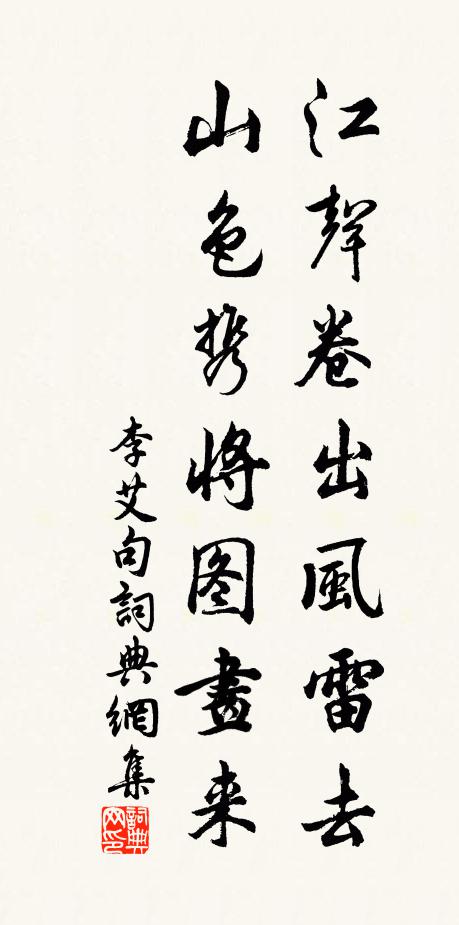 江聲卷出風雷去
山色携將图畫来
李艾句詞典網集
詞典网印